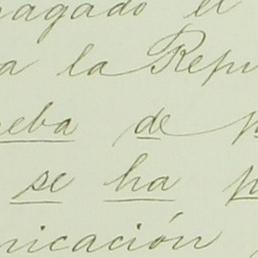 pagado el
a la Repú
ueba de p
se ha p
nicación